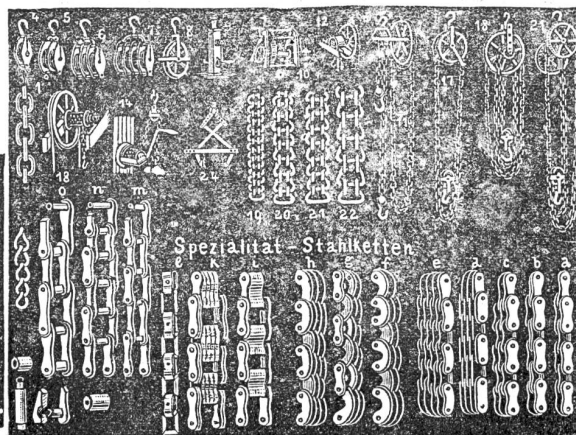 4 5 6 7 8 12 18
1
14
18 24
19 20 21 22
o n m
Spezialität-Stahlketten
l k i h g f e d c b a